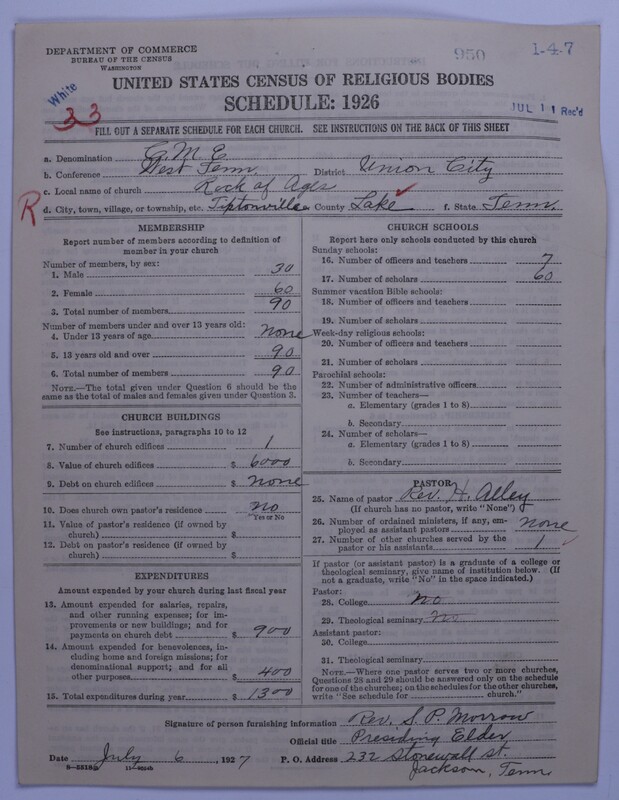 DEPARTMENT OF COMMERCE
BUREAU OF THE CENSUS
WASHINGTON
950
1-4-7
White
33
UNITED STATES CENSUS OF RELIGIOUS BODIES
SCHEDULE: 1926
JUL 11 Rec'd
FILL OUT A SEPARATE SCHEDULE FOR EACH CHURCH. SEE INSTRUCTIONS ON THE BACK OF THIS SHEET
a. Denomination C.M.E
b. Conference West Tenn. District Union City
c. Local name of church Rock of Ages
R
d. City, town, village, or township, etc. Tiptonville County Lake f. State Tenn.
MEMBERSHIP
Report number of members according to definition of
member in your church
Number of members, by sex:
1. Male 30
2. Female 60
3. Total number of members 90
Number of members under and over 13 years old:
4. Under 13 years of age None
5. 13 years old and over 90
6. Total number of members 90
NOTE.—The total given under Question 6 should be the
same as the total of males and females given under Question 3.
CHURCH BUILDINGS
See instructions, paragraphs 10 to 12
7. Number of church edifices 1
8. Value of church edifices $ 6000
9. Debt on church edifices $ None
10. Does church own pastor's residence No
Yes or No
11. Value of pastor's residence (if owned by
church) $
12. Debt on pastor's residence (if owned by
church) $
EXPENDITURES
Amount expended by your church during last fiscal year
13. Amount expended for salaries, repairs,
and other running expenses; for im-
provements or new buildings; and for
payments on church debt $ 900
14. Amount expended for benevolences, in-
cluding home and foreign missions; for
denominational support; and for all
other purposes $ 400
15. Total expenditures during year $ 1300
CHURCH SCHOOLS
Report here only schools conducted by this church
Sunday schools:
16. Number of officers and teachers 7
17. Number of scholars 60
Summer vacation Bible schools:
18. Number of officers and teachers
19. Number of scholars
Week-day religious schools:
20. Number of officers and teachers
21. Number of scholars
Parochial schools:
22. Number of administrative officers
23. Number of teachers—
a. Elementary (grades 1 to 8)
b. Secondary
24. Number of scholars—
a. Elementary (grades 1 to 8)
b. Secondary
PASTOR
25. Name of pastor Rev. H. Alley
(If church has no pastor, write "None")
26. Number of ordained ministers, if any, em-
ployed as assistant pastors None
27. Number of other churches served by the
pastor or his assistants 1
If pastor (or assistant pastor) is a graduate of a college or
theological seminary, give name of institution below. (If
not a graduate, write "No" in the space indicated.)
Pastor:
28. College No
29. Theological seminary No
Assistant pastor:
30. College
31. Theological seminary
NOTE.—Where one pastor serves two or more churches,
Questions 28 and 29 should be answered only on the schedule
for one of the churches; on the schedules for the other churches,
write "See schedule for church."
Signature of person furnishing information Rev. S. P. Morrow
Official title Presiding Elder
Date July 6, 1927 P. O. Address 232 Stonewall st.
Jackson, Tenn